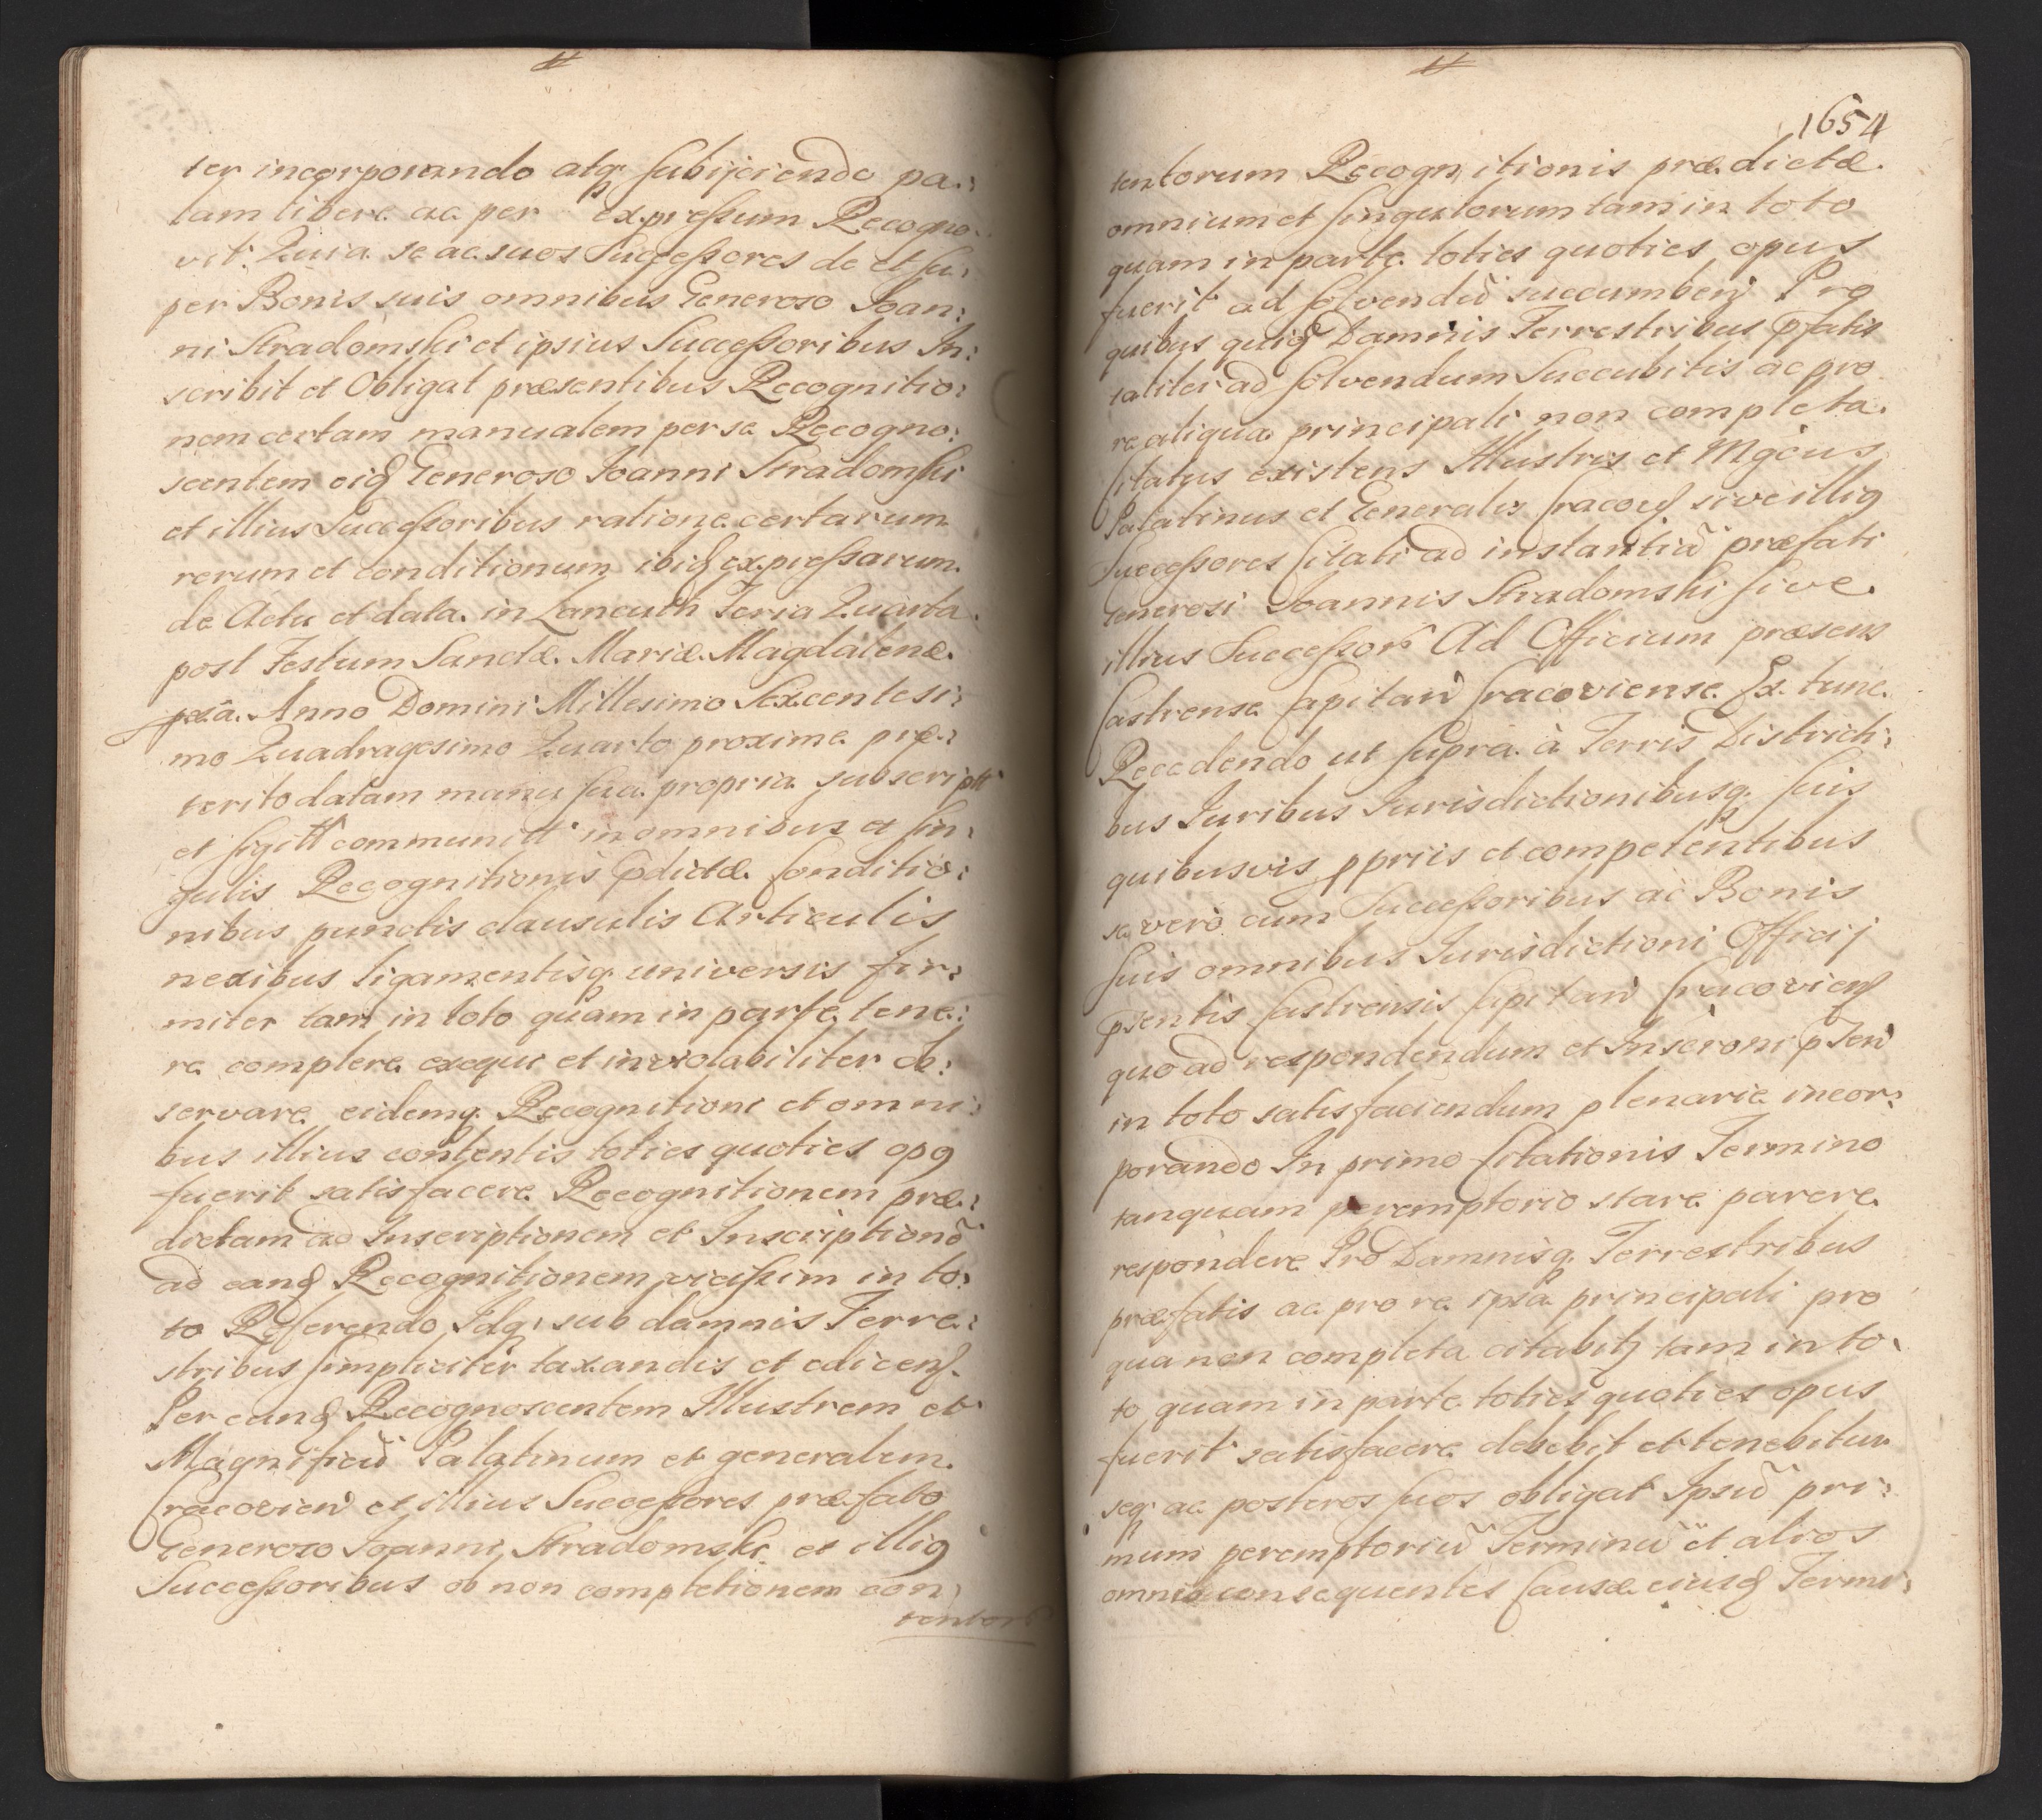 ter incorporando atq. subijciendo pa:
lam libere ac per expressum Recogno:
vit. Quia se ac suos Successores de et su:
per Bonis suis omnibus Generoso Joan:
ni Stradomski et ipsius Successoribus In:
scribit et Obligat præsentibus Recognitio:
nem certam manualem per se Recogno:
scentem eid Generoso Joanni Stradomski
et illius Successoribus ratione certarum
rerum et conditionum ibid expressarum
de Actu et data in Lancuth Feria Quarta
post Festum Sanctæ Mariæ Magdalenæ
pxa. Anno Domini Millesimo Sexcentesi:
mo Quadragesimo Quarto proxime præ:
terito datam manu sua propria subscript
et sigill communitt in omnibus et sin:
gulis Recognitionis pdictæ Conditio:
nibus punctis clausulis Articulis
nexibus ligamentisq. universis fir:
miter tam in toto quam in parte tene:
re complere exequi et inviolabiliter ob:
servare eidemq. Recognitioni et omni:
bus illius contentis toties quoties opq
fuerit satisfacere Recognitionem præ:
dictam ad Inscriptionem et Inscriptionē
ad eand Recognitionem vicissim in to:
to Referendo Idq. sub damnis Terre:
stribus simpliciter taxandis et edicend
Per eund Recognoscentem Illustrem et
Magnificū Palatinum et generalem
Cracovien et illius Successores præfato
Generoso Joanni Stradomski et illiq
Successoribus ob non completionem con:
tentor
1654
tentorum Recognitionis prædictæ
omnium et singulorum tam in toto
quam in parte toties quoties opus
fuerit ad solvendū succumben Pro
quibus quid Damnis Terrestribus pfatis
taliter ad solvendum Succubitis ac pro
re aliqua principali non completa
Citatus existens Illustris et Mgcus
Palatinus et Generalis Cracoven sive illiq
Successores Citati ad instantiā præfati
Generosi Joannis Stradomski sive
illius Successor Ad Officium præsens
Castrense Capitan Cracoviense Ex tunc
Recedendo ut supra à Terris Districti:
bus Juribus Jurisdictionibusq. suis
quibusvis ppriis et competentibus
se vero cum Successoribus ac Bonis
suis omnibus Jurisdictioni Officij
psentis Castrensis Capitan Cracovien
quo ad respondendum et Inscroni pnti
in toto satisfaciendum plenarie incor:
porando In primo Citationis Termino
tanquam peremptorio stare parere
respondere Pro Damnisq. Terrestribus
præfatis ac pro re ipsa principali pro
qua non completa citabitz tam in to:
to quam in parte toties quoties opus
fuerit satisfacere debebit et tenebitur
seq. ac posteros suos obligat Ipsū pri:
mum peremptoriū Terminū et alios
omnes consequentes Causæ eiusd Termi: